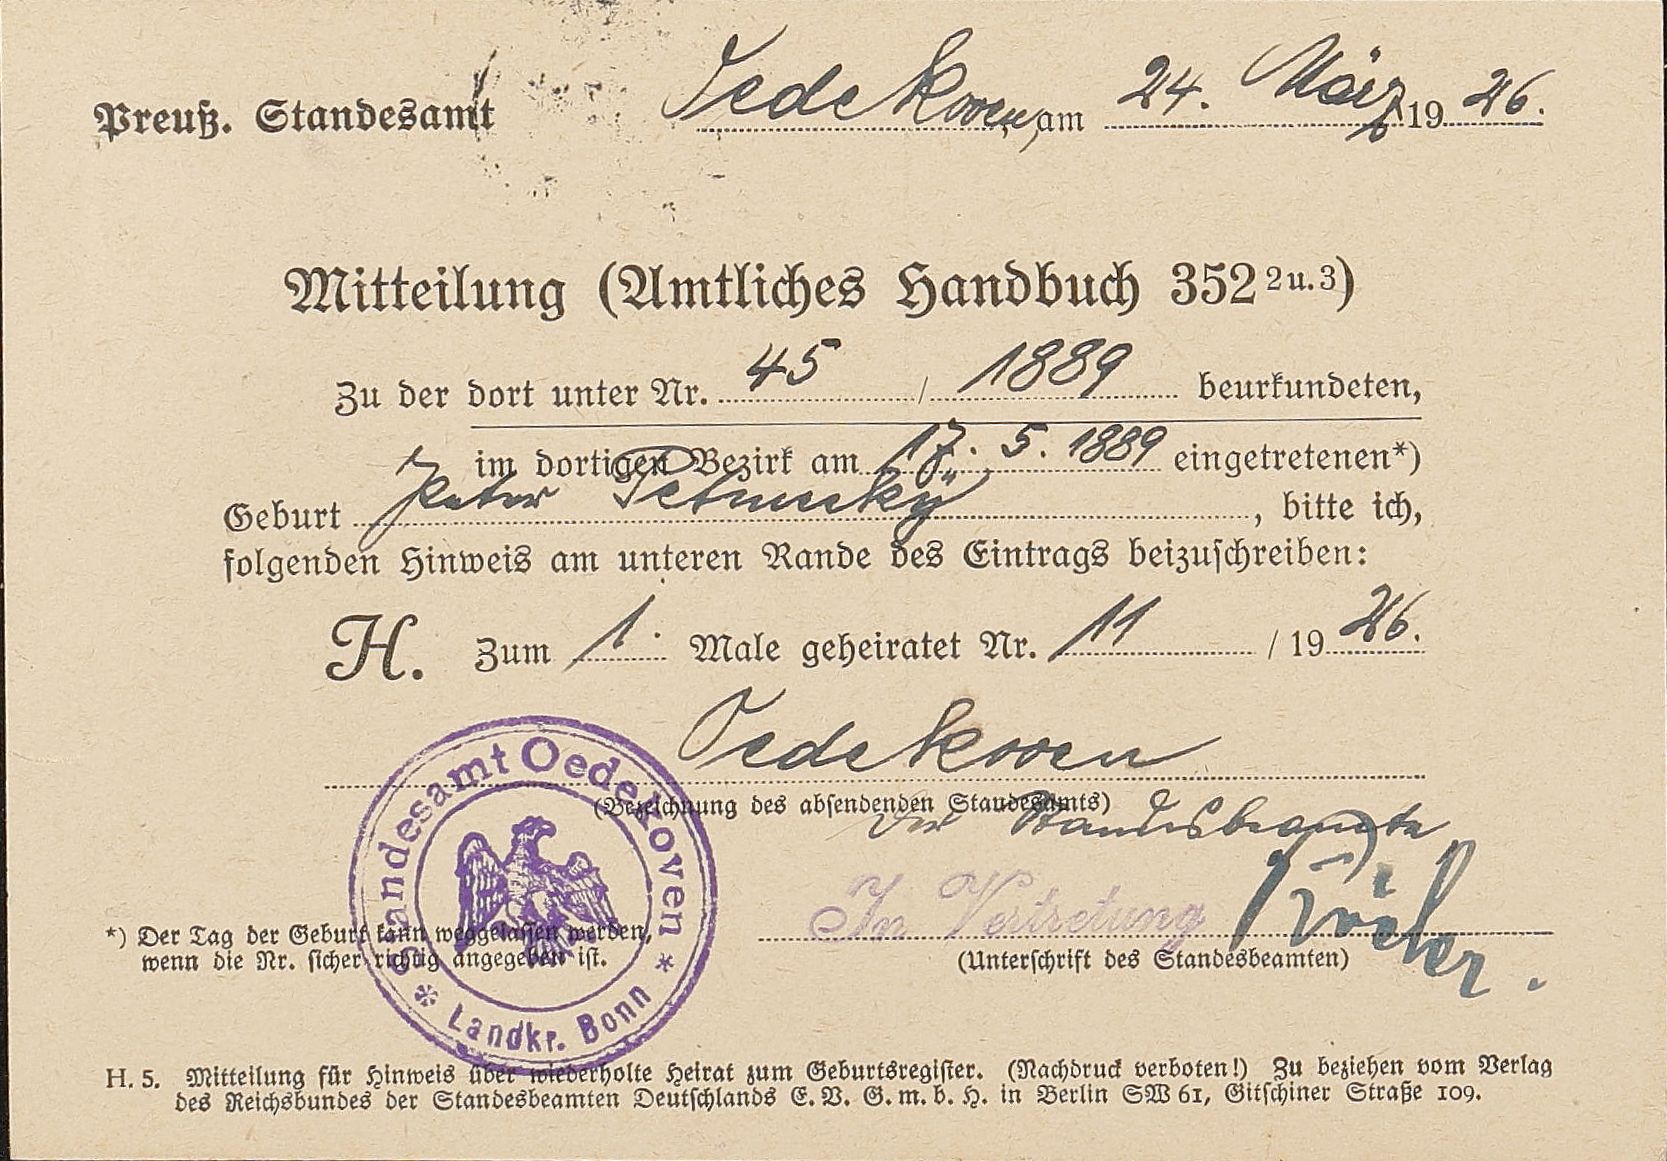 Preuß. Standesamt Oedekoven, am 24. März 1926.
Mitteilung (Amtliches Handbuch 352 2 u. 3)
Zu der dort unter Nr. 45 / 1889 beurkundeten,
im dortigen Bezirk am 17. 5. 1889 eingetretenen*)
Geburt Peter, bitte ich,
folgenden Hinweis am unteren Rande des Eintrags beizuschreiben:
H. Zum 1. Male geheiratet Nr. 11 / 1926.
Oedekoven
(Bezeichnung des absendenden Standesamts)
Der Standesbeamte
In Vertretung
(Unterschrift des Standesbeamten)
Standesamt Oedekoven
* Landkr. Bonn *
*) Der Tag der Geburt kann weggelassen werden,
wenn die Nr. sicher richtig angegeben ist.
H. 5. Mitteilung für Hinweis über wiederholte Heirat zum Geburtsregister. (Nachdruck verboten!) Zu beziehen vom Verlag
des Reichsbundes der Standesbeamten Deutschlands E. V. G. m. b. H. in Berlin SW 61, Gitschiner Straße 109.